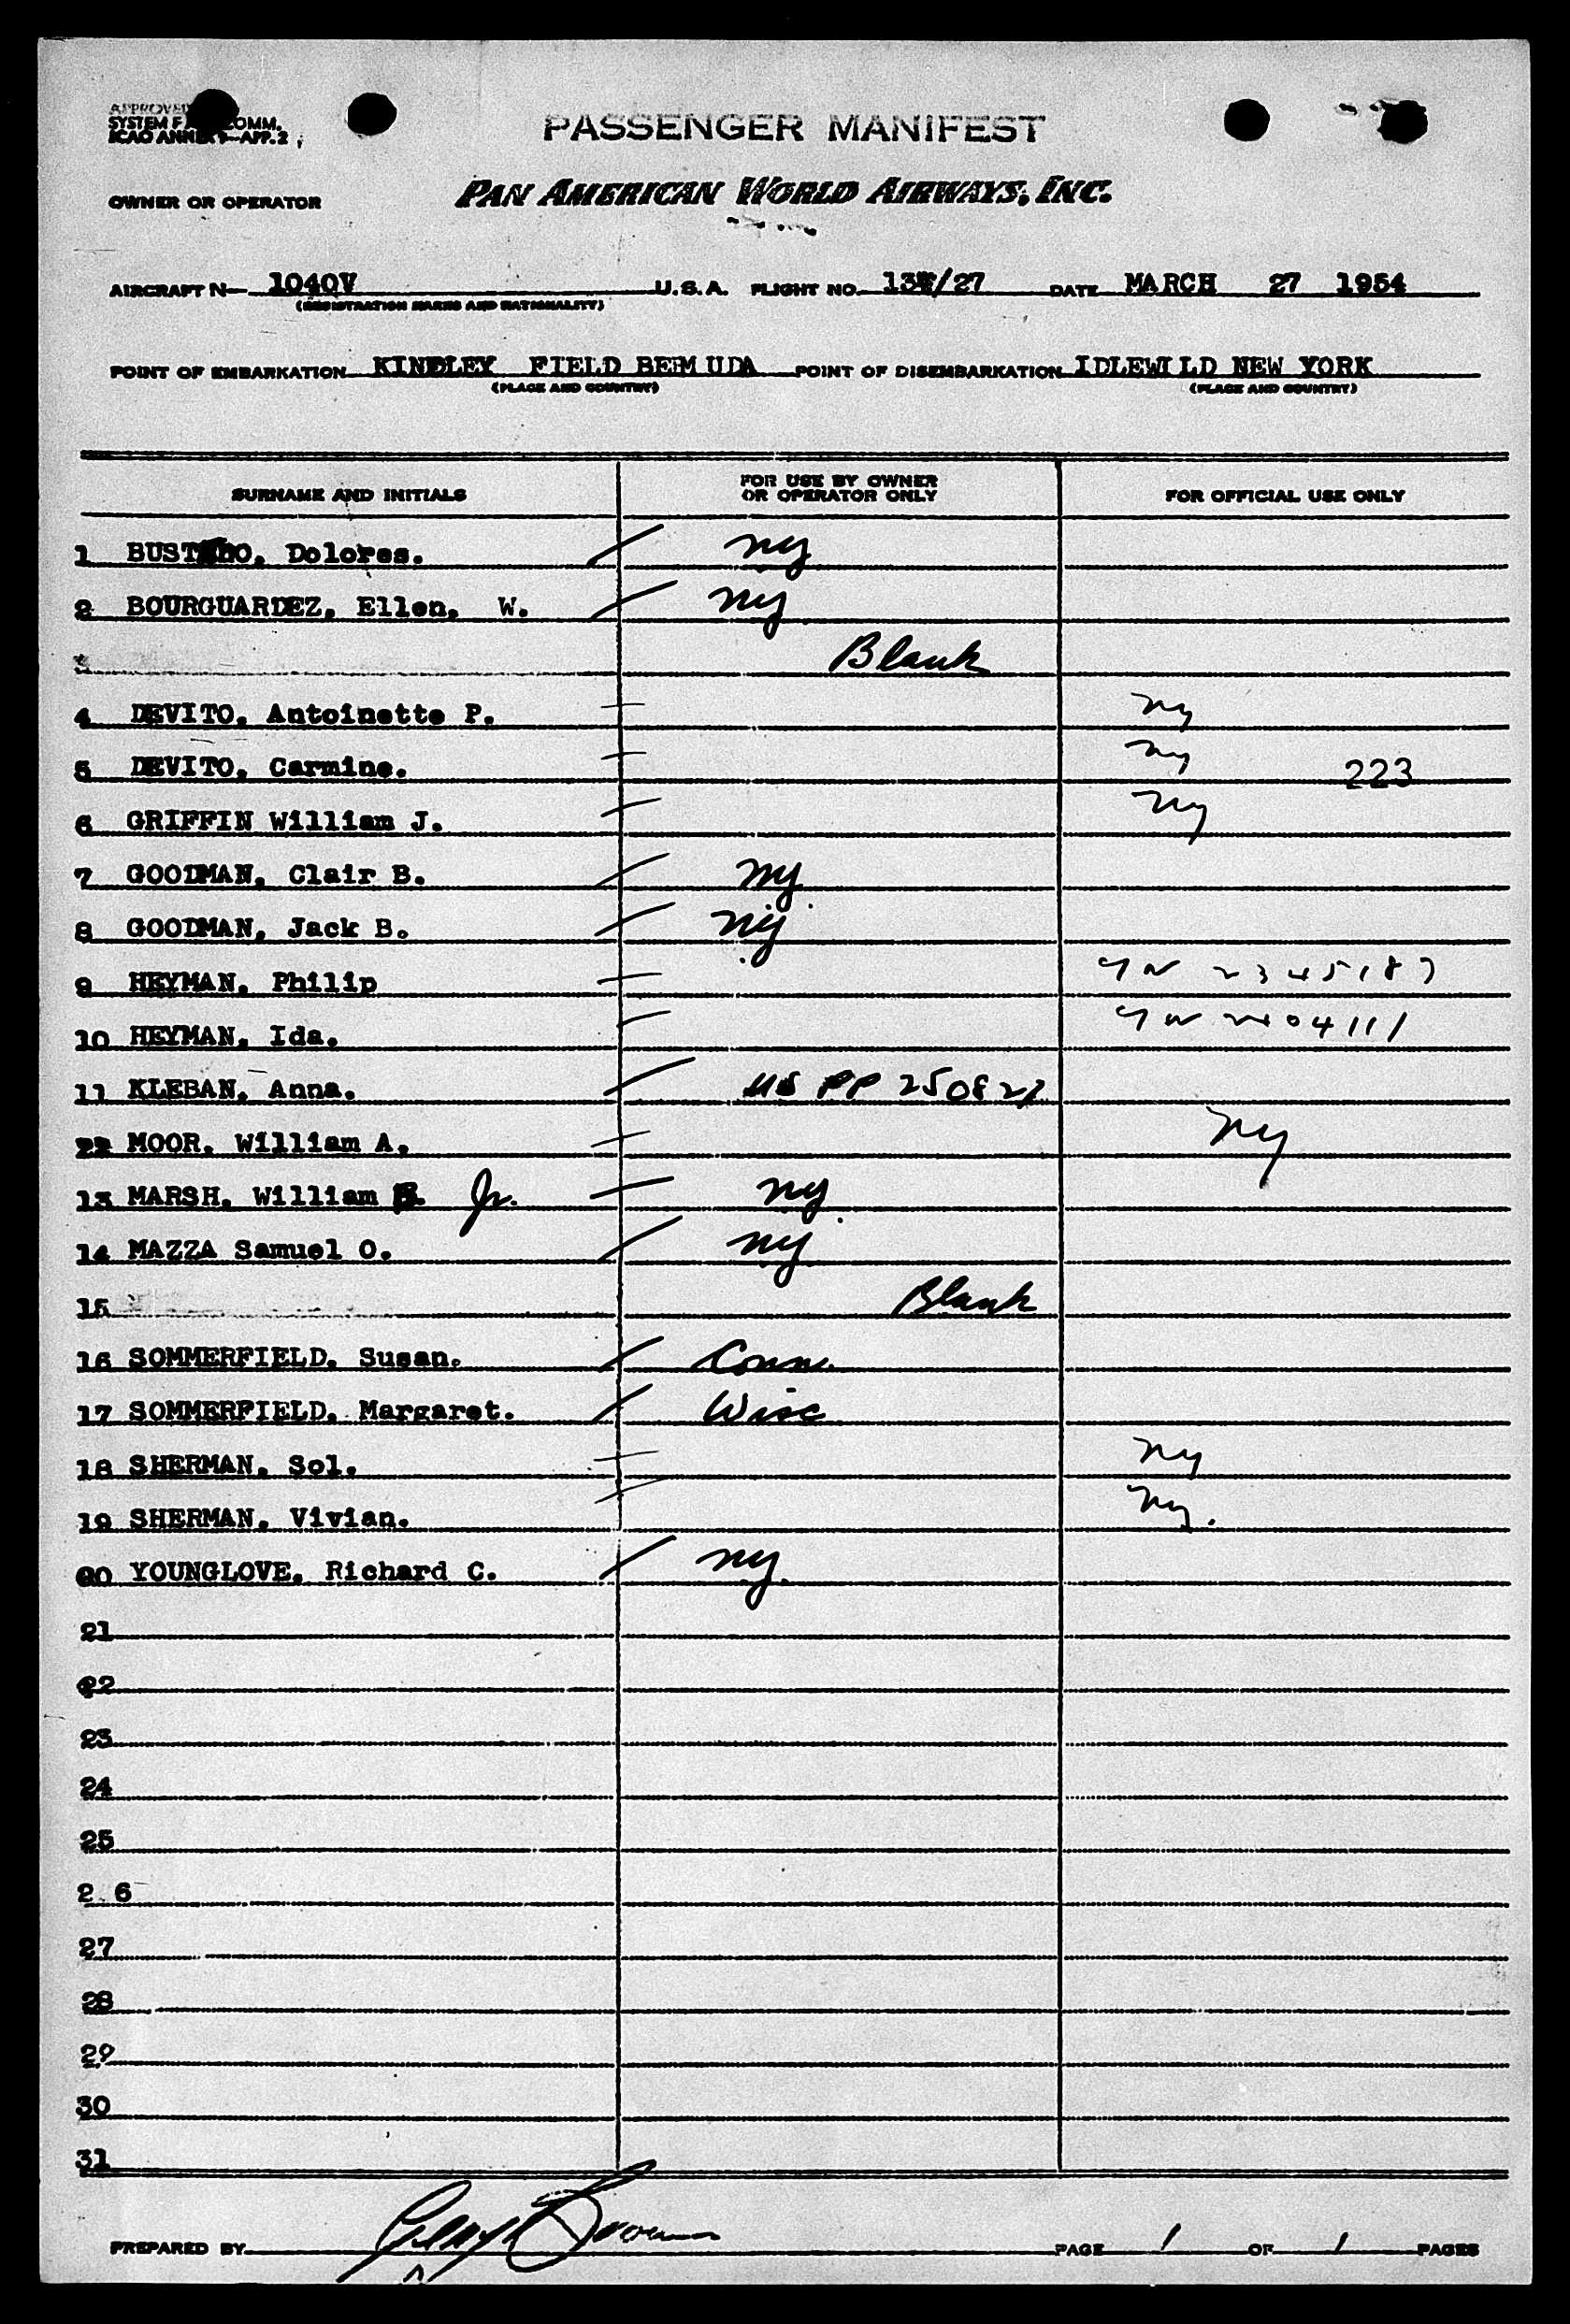 APPROVED
SYSTEM F COMM.
ICAO ANNEX 9—APP.2
PASSENGER MANIFEST
OWNER OR OPERATOR PAN AMERICAN WORLD AIRWAYS, INC.
AIRCRAFT N— 1040V U.S.A. FLIGHT NO. /27 DATE MARCH 27 1954
(REGISTRATION MARKS AND NATIONALITY)
POINT OF EMBARKATION KINDLEY FIELD BERMUDA POINT OF DISEMBARKATION IDLEWILD NEW YORK
(PLACE AND COUNTRY) (PLACE AND COUNTRY)
SURNAME AND INITIALS FOR USE BY OWNER OR OPERATOR ONLY FOR OFFICIAL USE ONLY
1 Dolores. ny
2 BOURGUARDEZ, Ellen, W. ny
3 Blank
4 DEVITO, Antoinette P. ny
5 DEVITO, Carmine. ny 223
6 GRIFFIN William J. ny
7 GOODMAN, Clair B. ny
8 GOODMAN, Jack B. ny
9 HEYMAN, Philip 2345187
10 HEYMAN, Ida.
11 KLEBAN, Anna. US PP 250827
22 MOOR, William A. ny
13 MARSH, William Jr. ny
14 MAZZA Samuel O. ny
15 Blank
16 SOMMERFIELD, Susan. Conn.
17 SOMMERFIELD, Margaret. Wisc
18 SHERMAN, Sol. ny
19 SHERMAN, Vivian. ny.
20 YOUNGLOVE, Richard C. ny
21
22
23
24
25
2 6
27
28
29
30
31
PREPARED BY PAGE 1 OF 1 PAGES